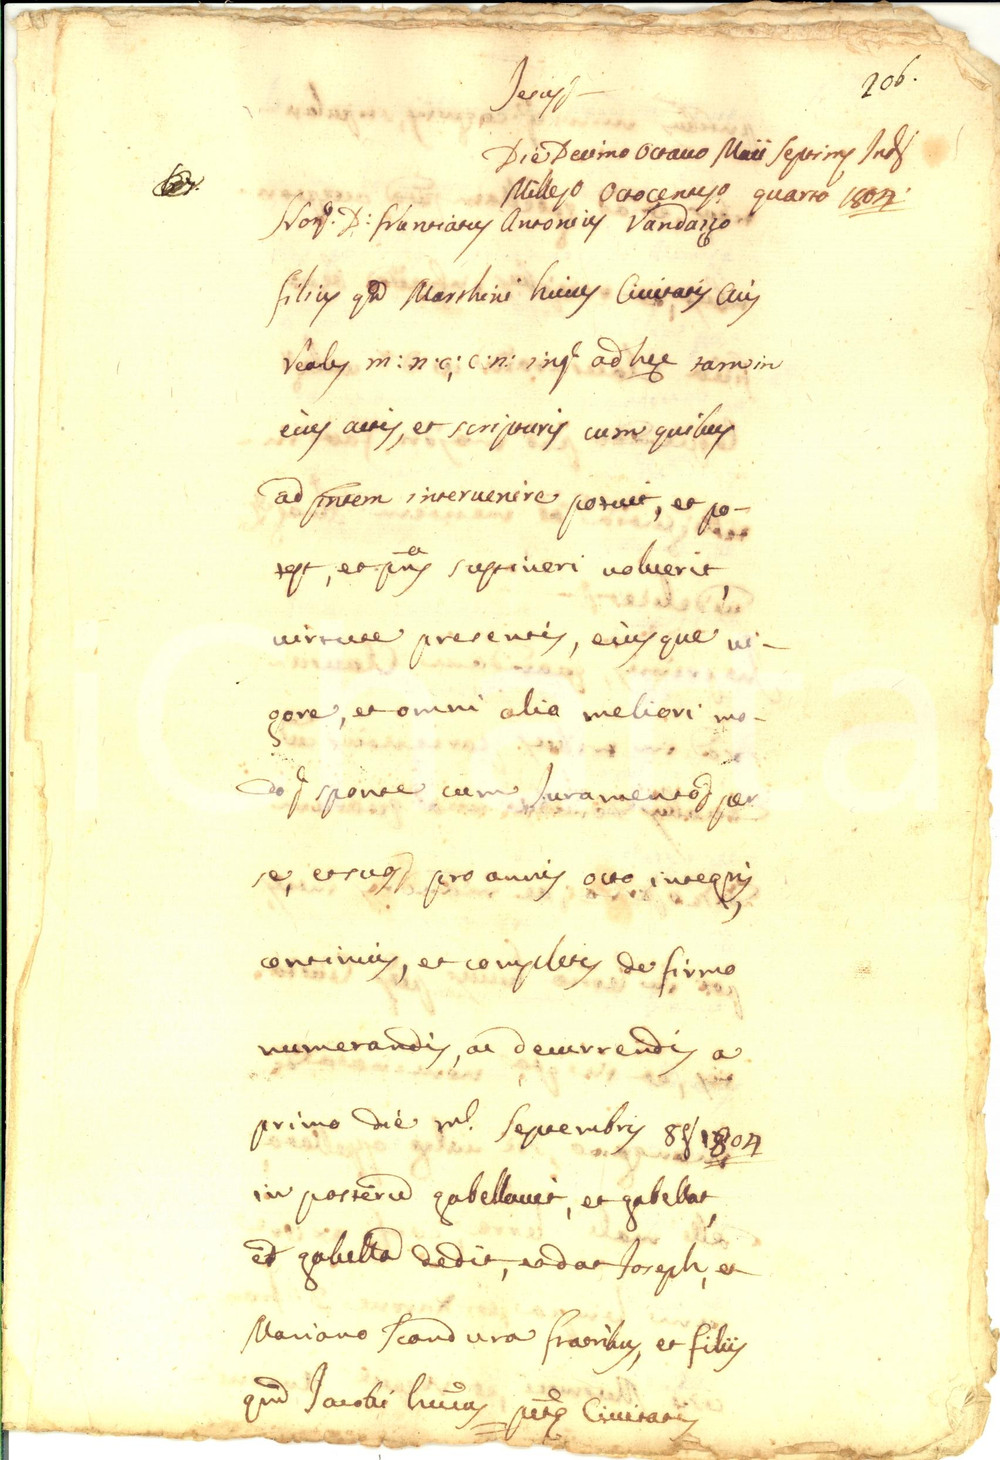 Jesus
206.
Die Decimo Octavo Maii Septime Ind.
Millego Octocentego quarto 1804.
D: Franciscus Antonius Vandazzo
filius qd Marchini huius Civitatis
m: n: c: c: n: ad hec tam in
eius actis, et scripturis cum quibus
ad pntem intervenire potuit, et po-
test, et suptineri voluerit,
virtute presentis, eiusque vi-
gore, et omni alia meliori mo-
do sponte cum Juramento per
se, et suos pro annis octo integris,
continuis, et completis de firmo
numerandis, ac decurrendis a
primo die Septembris 8 1804
in posterum gabellavit, et gabellat,
et gabella dedit, et dat Joseph, et
Mariano Scandura fratribus, et filiis
qnd Jacobi huius Civitatis